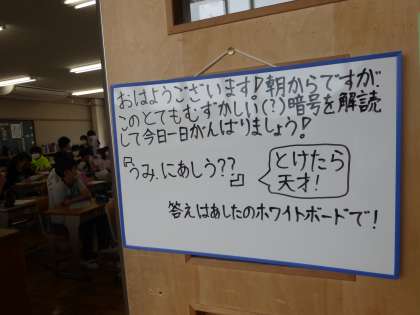 おはようございます!朝からですが、
このとてもむずかしい(?)暗号を解読
して今日一日がんばりましょう!
『うみ.にあしう??』
とけたら
天才!
答えはあしたのホワイトボードで!